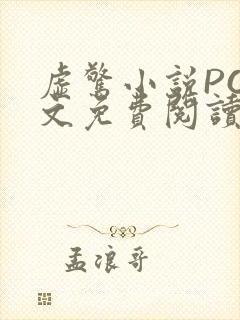 虚驚小説PO
文免費閱讀
孟浪哥